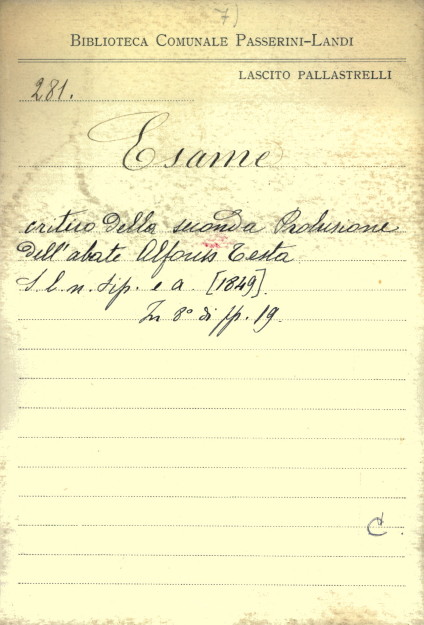 7)
BIBLIOTECA COMUNALE PASSERINI-LANDI
LASCITO PALLASTRELLI
281.
Esame
critico della seconda Prolusione
dell'abate Alfonso Testa.
S. l. n. tip. e a. [1849].
In 8° di pp. 19.
C.